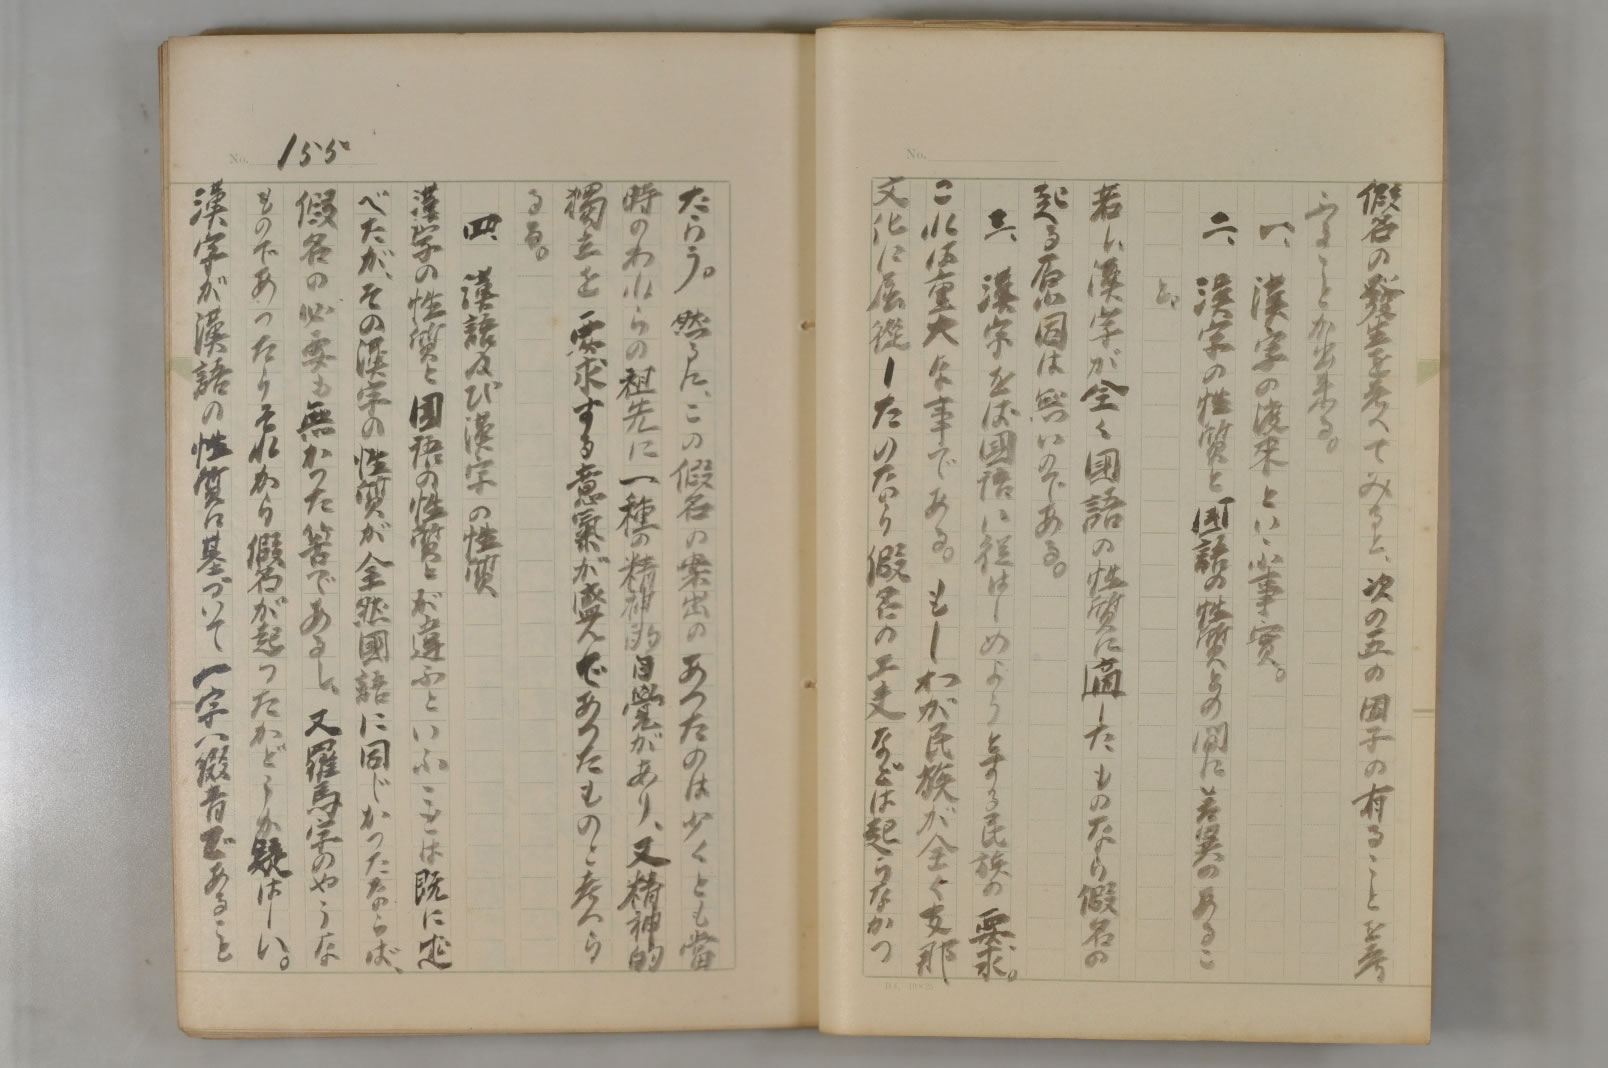 假名の發生を考へてみると、次の五の因子の有ることを考
ふることが出來る。
一、漢字の渡來といふ事實。
二、漢字の性質と國語の性質との間に差異のあるこ
と。
若し漢字が全く國語の性質に適したものなら假名の
起る原因は無いのである。
三、漢字をば國語に從はしめようとする民族の要求。
これは重大な事である。もしわが民族が全く支那
文化に屈從したのなら假名の工夫などは起らなかつ
No.
No. 155
たらう。然るに、この假名の案出のあつたのは少くとも當
時のわれらの祖先に一種の精神的自覺があり、又精神的
獨立を要求する意氣が盛んであつたものと考へら
るゝ。
四、漢語及び漢字の性質
漢字の性質と國語の性質とが違ふといふことは既に述
べたが、その漢字の性質が全然國語に同じかつたならば、
假名の必要も無かつた筈であるし、又羅馬字のやうな
ものであつたりそれから假名が起つたかどうか疑はしい。
漢字が漢語の性質に基づいて一字一綴音であること